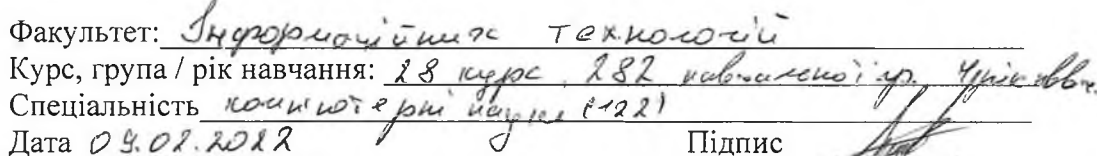 Факультет: Інформаційних технологій
Курс, група / рік навчання: 2 курс, 282 навчальної гр.
Спеціальність комп'ютерні науки (122)
Дата 09.02.2022 Підпис